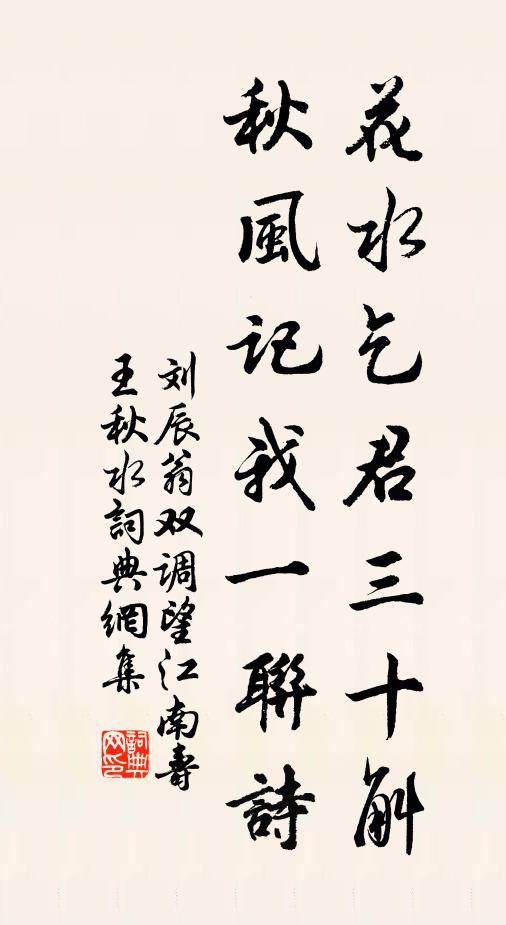 花水乞君三十斛
秋風記我一聯詩
刘辰翁双调望江南寿
王秋水詞典網集
詞典网印